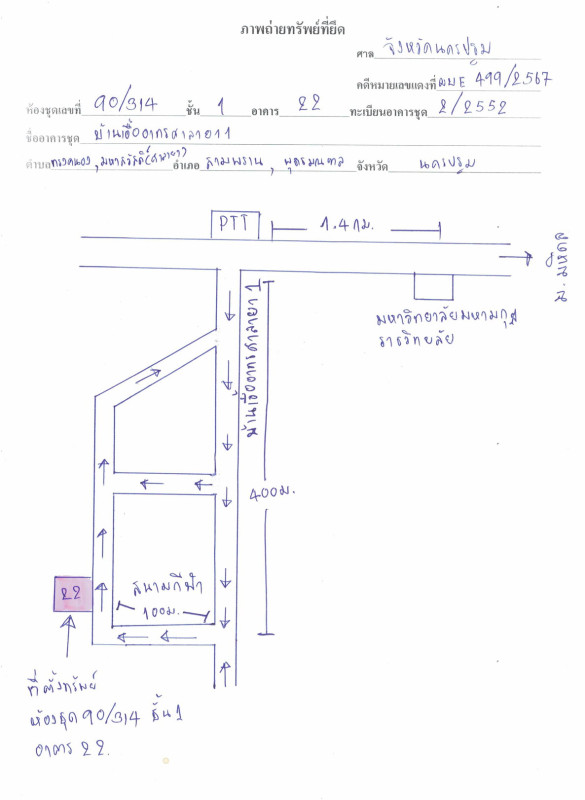 ภาพถ่ายทรัพย์ที่ยึด
ศาล จังหวัดนครปฐม
คดีหมายเลขแดงที่ ผบE 499/2567
ห้องชุดเลขที่ 90/314 ชั้น 1 อาคาร 22 ทะเบียนอาคารชุด 2/2552
ชื่ออาคารชุด บ้านเอื้ออาทรศาลายา 1
ตำบล ทรงคนอง, มหาสวัสดิ์(ศาลายา) อำเภอ สามพราน, พุทธมณฑล จังหวัด นครปฐม
PTT
1.4 กม.
มหาวิทยาลัยมหามกุฏ
ราชวิทยาลัย
บ้านเอื้ออาทรศาลายา 1
400ม.
สนามกีฬา
100ม.
22
ที่ตั้งทรัพย์
ห้องชุด 90/314 ชั้น 1
อาคาร 22.